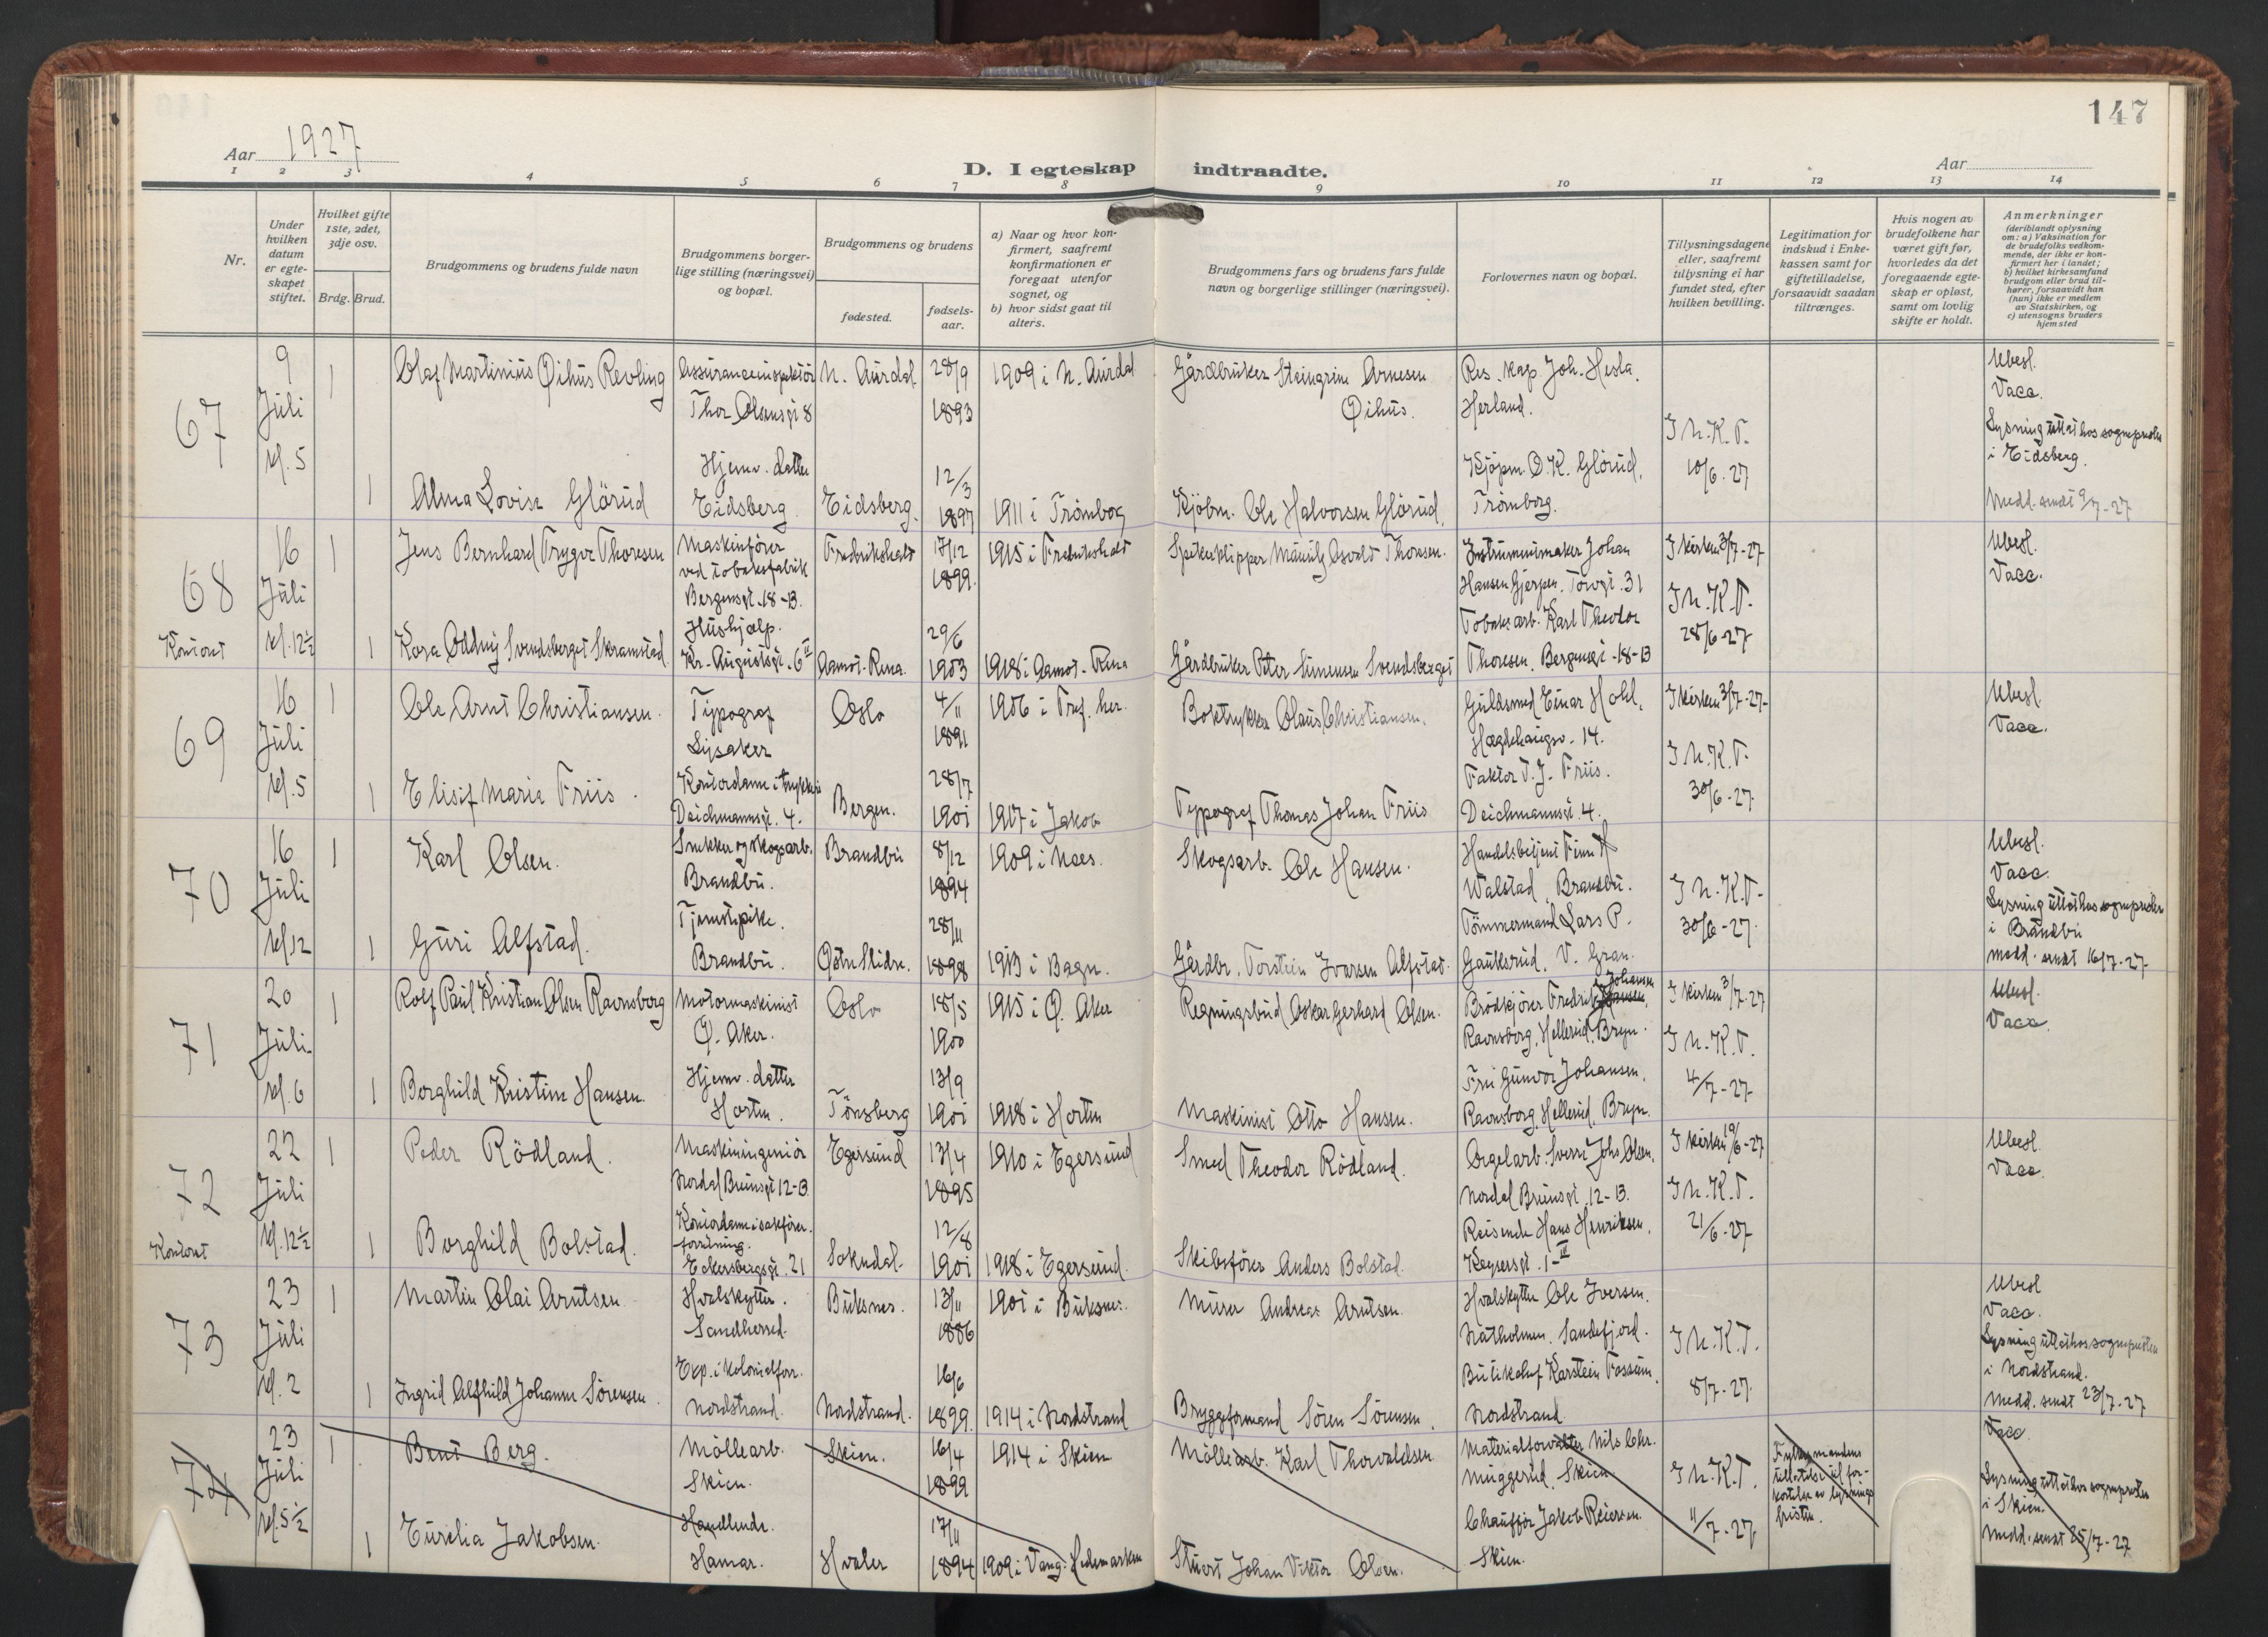 147
Aar 1927
D. I egteskap indtraadte.
Aar
1 2 3 4 5 6 7 8 9 10 11 12 13 14
Nr.
Under hvilken datum er egte-skapet stiftet.
Hvilket gifte 1ste, 2det, 3dje osv.
Brdg. Brud.
Brudgommens og brudens fulde navn
Brudgommens borger-lige stilling (næringsvei) og bopæl.
Brudgommens og brudens
fødested.
fødsels-aar.
a) Naar og hvor kon-firmert, saafremt konfirmationen er foregaat utenfor sognet, og
b) hvor sidst gaat til alters.
Brudgommens fars og brudens fars fulde navn og borgerlige stillinger (næringsvei).
Forlovernes navn og bopæl.
Tillysningsdagene eller, saafremt tillysning ei har fundet sted, efter hvilken bevilling.
Legitimation for indskud i Enke-kassen samt for giftetilladelse, forsaavidt saadan tiltrænges.
Hvis nogen av brudefolkene har været gift før, hvorledes da det foregaaende egte-skap er opløst, samt om lovlig skifte er holdt.
Anmerkninger (deriblandt oplysning om: a) Vaksination for de brudefolks vedkom-mende, der ikke er kon-firmert her i landet; b) hvilket kirkesamfund brudgom eller brud til-hører, forsaavidt han (hun) ikke er medlem av Statskirken, og c) utensogns bruders hjemsted
67
9 Juli kl. 5
1 Olaf Martinius Øihus Revling
Assuranceinspektør Thor Olsensgt 8
N. Aurdal 28/9 1893 1909 i N. Aurdal
Gårdbruker Steingrim Arnesen Øihus.
Res. kap. Joh. Hesla. Herland.
I N.K.T. 10/6-27
Ubesl. Vacc. Lysning uttat hos sognepresten i Eidsberg. Medd. sendt 9/7-27
1 Alma Lovise Glörud
Hjemv. datter Eidsberg
Eidsberg. 12/3 1897 1911 i Trömborg
Kjöbm. Ole Halvorsen Glörud.
Kjöpm. O.K. Glörud. Trömborg.
68 Kontoret
16 Juli kl. 12½
1 Jens Bernhard Trygve Thoresen
Maskinfører ved tobaksfabrik Bergensgt. 18-B.
Fredrikshald 17/12 1899. 1915 i Fredrikshald
Spikerklipper Mauritz Osvald Thoresen.
Instrumentmaker Johan Hansen Gjerpen. Torvgt. 31
I kirken 3/7-27 I N.K.T. 28/6-27
Ubesl. Vacc.
1 Kara Oddny Svendsberget Skramstad
Hushjælp. Kr. Augustsgt. 6 II
Aamot-Rena. 29/6 1903 1918 i Aamot-Rena
Gårdbruker Peter Simensen Svendsberget
Tobaksarb. Karl Theodor Thoresen. Bergensgt-18-B
69
16 Juli kl. 5
1 Ole Arnt Christiansen.
Typograf Lysaker
Oslo 4/11 1891 1906 i Tref. her.
Boktrykker Olaus Christiansen.
Guldsmed Einar Hohl. Hægdehaugsv. 14.
I kirken 3/7-27- I N.K.T. 30/6-27
Ubesl. Vacc.
1 Elisif Marie Friis.
Kontordame i trykkeri Deichmannsgt. 4.
Bergen. 28/7 1901 1917 i Jakob
Typograf Thomas Johan Friis
Faktor T.J. Friis. Deichmannsgt. 4.
70
16 Juli kl 12
1 Karl Olsen.
Snekker og skogsarb. Brandbu.
Brandbu 8/12 1894 1909 i Næs.
Skogsarb. Ole Hansen.
Handelsbetjent Finn Walstad, Brandbu.
I N.K.T- 30/6-27.
Ubesl. Vacc. Lysning uttat hos sognepresten i Brandbu medd. sendt 16/7-27-
1 Guri Alfstad.
Tjenestepike. Brandbu.
Østre Slidre. 28/11 1898 1913 i Bagn.
Gårdbr. Torstein Ivarsen Alfstad.
Tömmermand Lars P. Gauksrud. V. Gran.
71
20 Juli kl. 6
1 Rolf Paul Kristian Olsen Ravnsborg
Motormaskinist Ø. Aker.
Oslo 18/5 1900 1915 i Ø. Aker
Regningsbud Oskar Gerhard Olsen.
Brödkjörer Fredrik Johansen Ravnsborg, Hellerud, Bryn.
I kirken 3/7-27 I N.K.T. 4/7-27
Ubesl. Vacc.
1 Borghild Kristine Hansen.
Hjemv. datter Horten.
Tönsberg 13/9 1901 1918 i Horten
Maskinist Otto Hansen.
Fru Gunvor Johansen, Ravnsborg, Hellerud, Bryn.
72 Kontoret
22 Juli kl. 12½
1 Peder Rödland.
Maskiningeniör Nordal Brunsgt 12-B
Egersund 13/4 1895 1910 i Egersund
Smed Theodor Rödland.
Orgelarb. Sverre Johs Olsen. Nordal Brunsgt. 12-B.
I kirken 19/6-27 I N.K.T. 21/6-27
Ubesl. Vacc.
1 Borghild Bolstad.
Kontordame i sakfører-forretning. Eckersbergsgt. 21
Sokndal. 12/8 1901 1918 i Egersund.
Skibsfører Anders Bolstad.
Reisende Hans Henriksen. Keysersgt. 1-III
73
23 Juli kl. 2
1 Martin Olai Arntsen
Hvalskytter. Sandherred.
Buksnes. 13/11 1886 1901 i Buksnes.
Murer Andreas Arntsen.
Hvalskytter Ole Iversen. Natholmen. Sandefjord.
I N.K.T. 8/7-27.
Ubesl Vacc. Lysning uttat hos sognepresten i Nordstrand. Medd. sendt 23/7-27
1 Ingrid Alfhild Johanne Sörensen
Exp. i kolonialforr. Nordstrand.
Nordstrand. 16/6 1899. 1914 i Nordstrand
Bryggeformand Sören Sörensen.
Butikchef Karstein Fossum. Nordstrand
74
23 Juli kl. 5½
1 Bent Berg.
Möllearb. Skien.
Skien. 16/4 1899 1914 i Skien
Möllearb. Karl Thorvaldsen
Materialforvalter Nils Chr. Muggerud, Skien
I N.K.T. 11/7-27
Fylkesmandens tillatelse til for-kortelse av lysnings-fristen.
Vacc. Lysning uttat hos sognepresten i Skien. Medd. sendt 25/7-27
1 Eurelia Jakobsen.
Handlende. Hamar.
Hvaler 17/11 1894 1909 i Vang. Hedemarken
Stuert Johan Viktor Olsen.
Chauffør Jakob Reiersen. Skien.